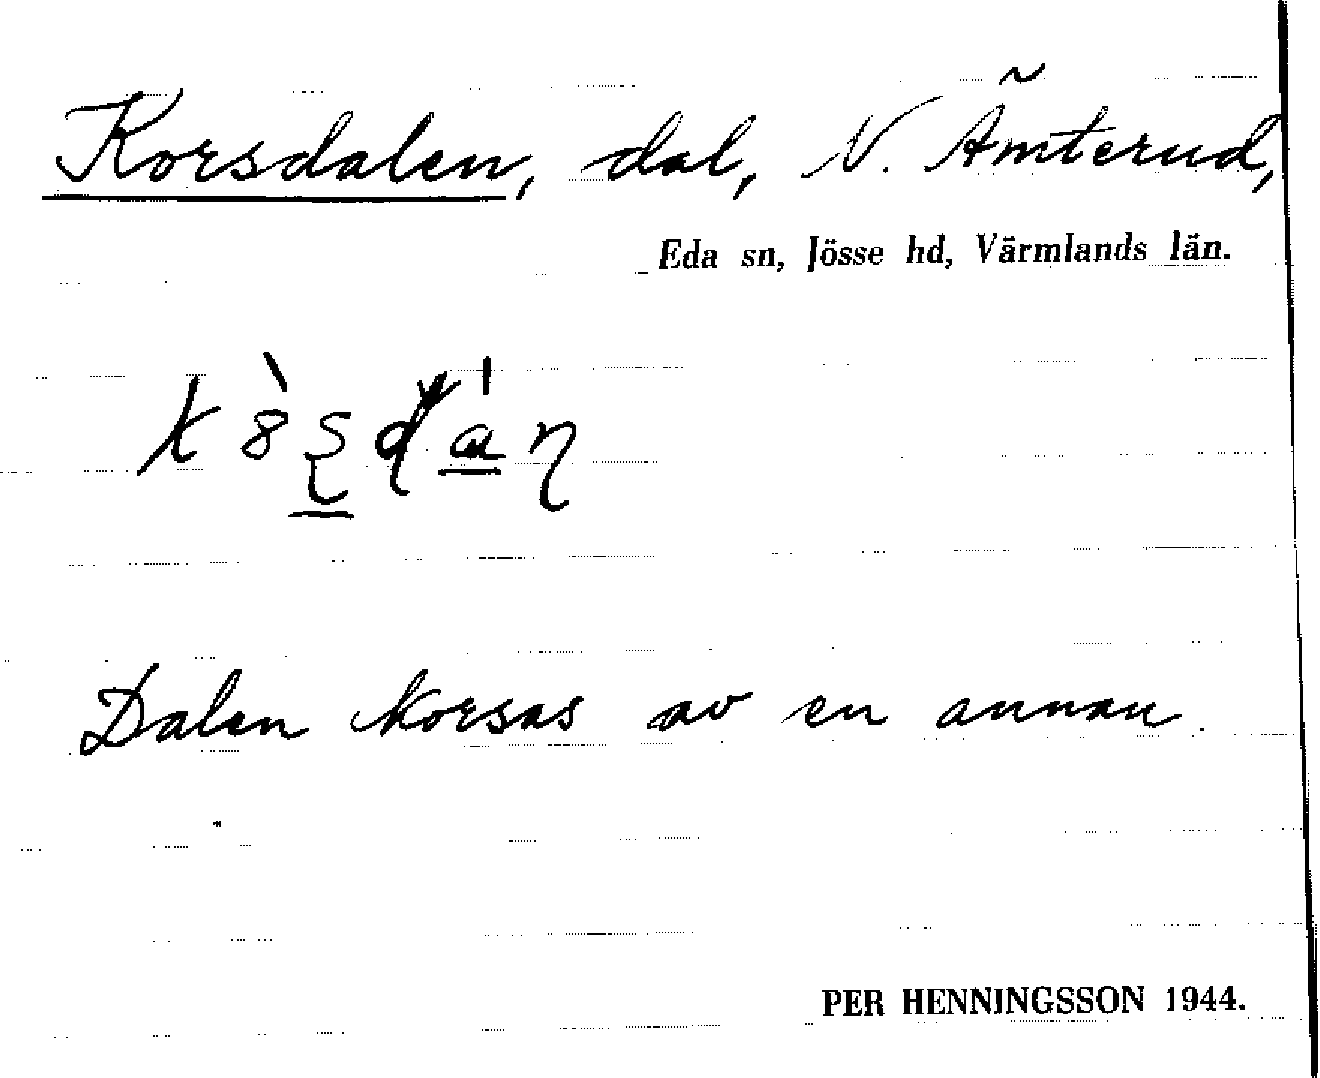 Korsdalen, dal, N. Ämterud,
Eda sn, Jösse hd, Värmlands län.
Dalen korsas av en annan.
PER HENNINGSSON 1944.